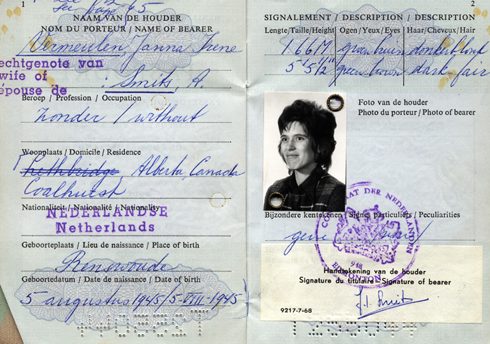 See page 65
NAAM VAN DE HOUDER
NOM DU PORTEUR / NAME OF BEARER
Vermeulen Janna Irene
echtgenote van
wife of
épouse de
Smits A.
Beroep / Profession / Occupation
zonder / without
Woonplaats / Domicile / Residence
Lethbridge Alberta, Canada
Coalhurst
Nationaliteit / Nationalité / Nationality
NEDERLANDSE
Netherlands
Geboorteplaats / Lieu de naissance / Place of birth
Renswoude
Geboortedatum / Date de naissance / Date of birth
5 augustus 1945 / 5-VIII-1945
2
SIGNALEMENT / DESCRIPTION / DESCRIPTION
Lengte/Taille/Height Ogen/Yeux/Eyes Haar/Cheveux/Hair
1.66 M groen bruin donkerblond
5' 5½" green brown dark fair
Foto van de houder
Photo du porteur / Photo of bearer
Bijzondere kentekenen / Signes particuliers / Peculiarities
geen
DER NEDERLANDEN
EDMONTON
Handtekening van de houder
Signature du titulaire - Signature of bearer
9217-7-68
J.I. Smits